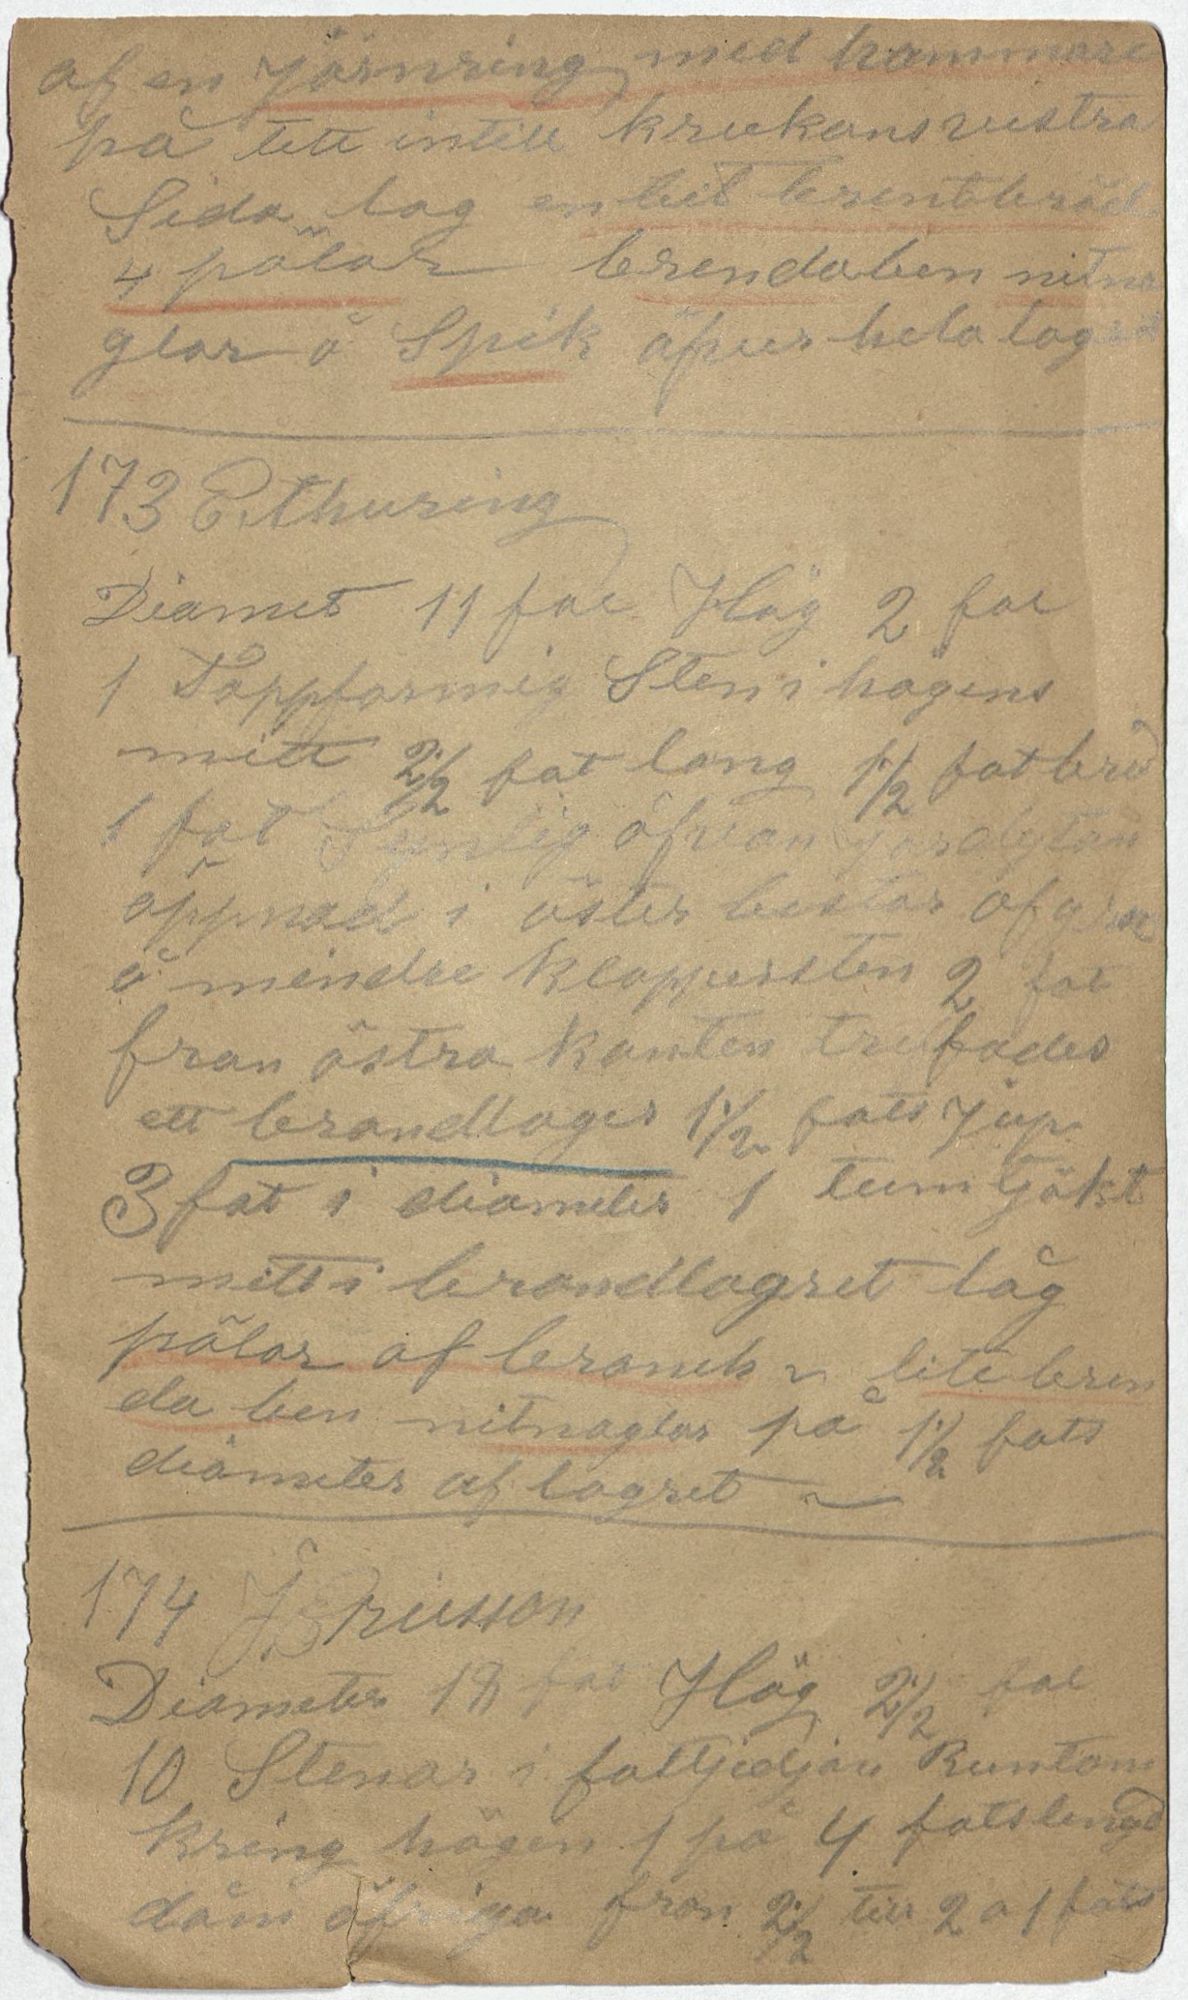 af en Järnring med hammare
på tett intill krukans vestra
Sida lag en bit brentbröd
4 pälar brenda ben nitna
glar å Spik äfver hela lagret
173 E. thuring
Diamet 11 fot Hög 2 fot
1 Toppformig Sten i högens
mitt 2 1/2 fot lang 1 1/2 fot bred
1 fot Synlig öfvan jordytan
öppnad i öster bestor af grus
å mindre klappersten 2 fot
fran östra kanten treffades
ett brandlager 1 1/2 fots jup
3 fot i diameter 1 tum tjökt
mitt i brandlagret låg
pälar af brons lite bren
da ben nitnaglar på 1 1/2 fots
diameter af lagret
174 J. Ericsson
Diameter 18 fot Hög 2 1/2 fot
10 Stenar i fotkjedjan Runtom
kring högen 1 på 4 fotslengd
däm öfriga fran 2 1/2 till 2 a 1 fots